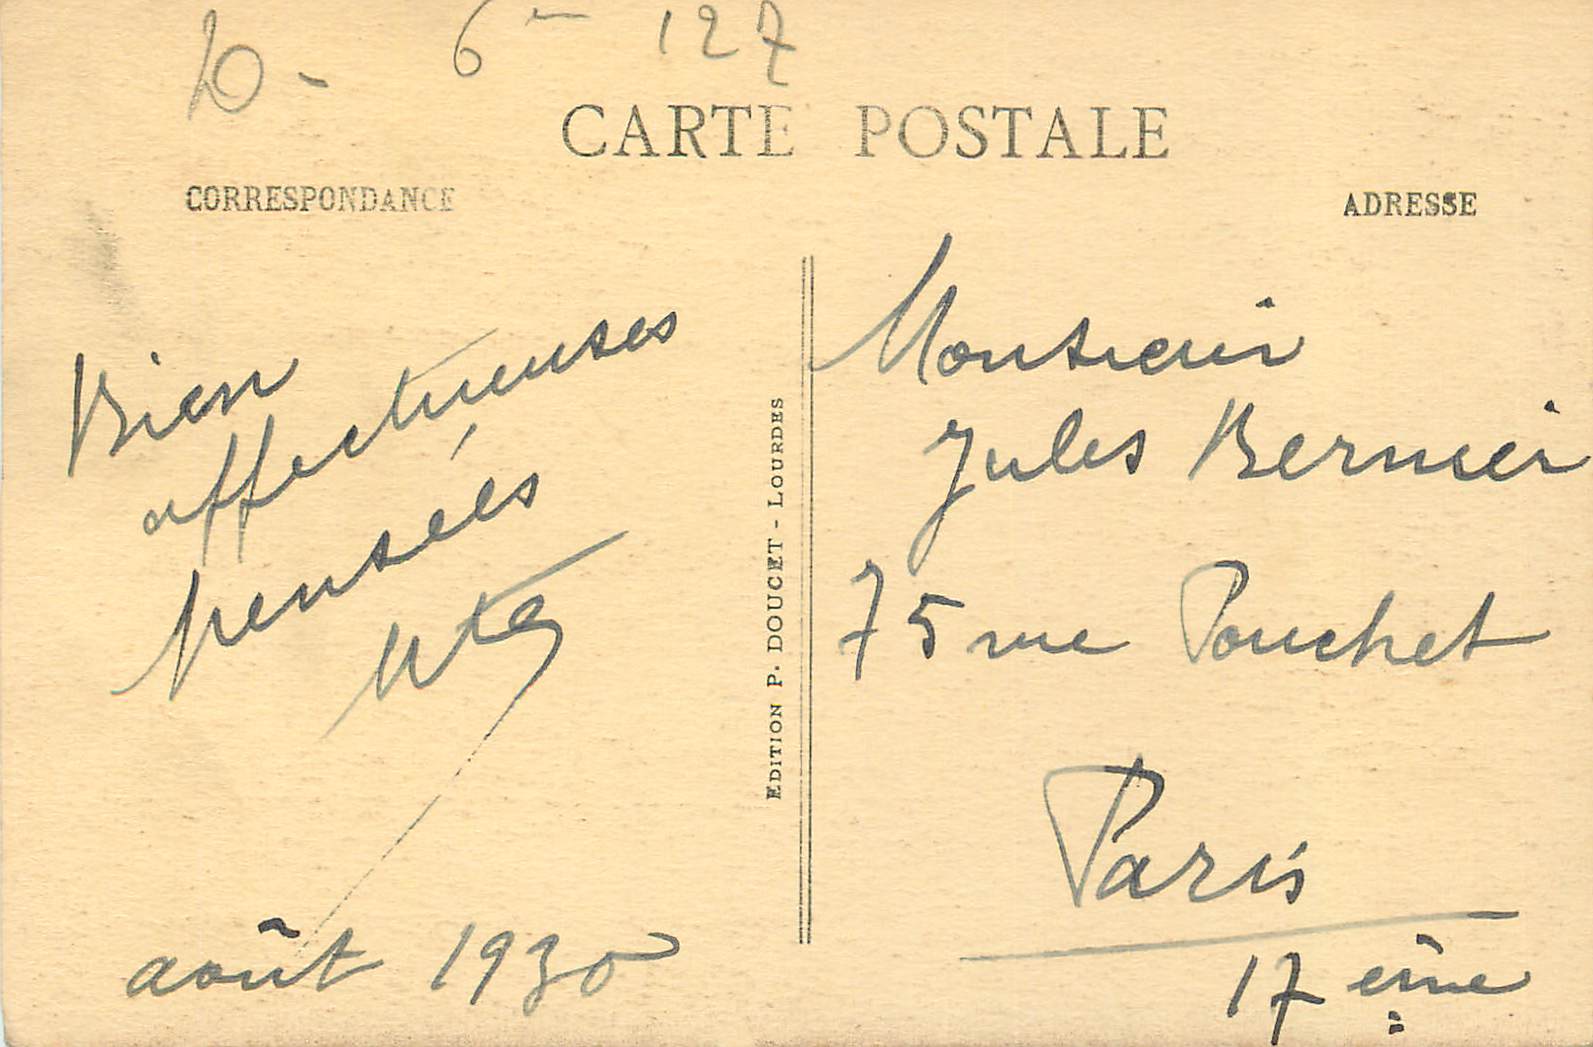 6 127
CARTE POSTALE
CORRESPONDANCE
ADRESSE
Bien
affectueuses
pensées
août 1930
EDITION P. DOUCET - LOURDES
Monsieur
Jules Bernier
75 rue Pouchet
Paris
17 ème